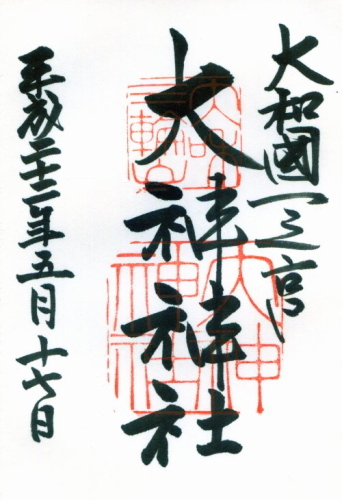 大和國一之宮
大神神社
平成二十二年五月十七日
大神神社